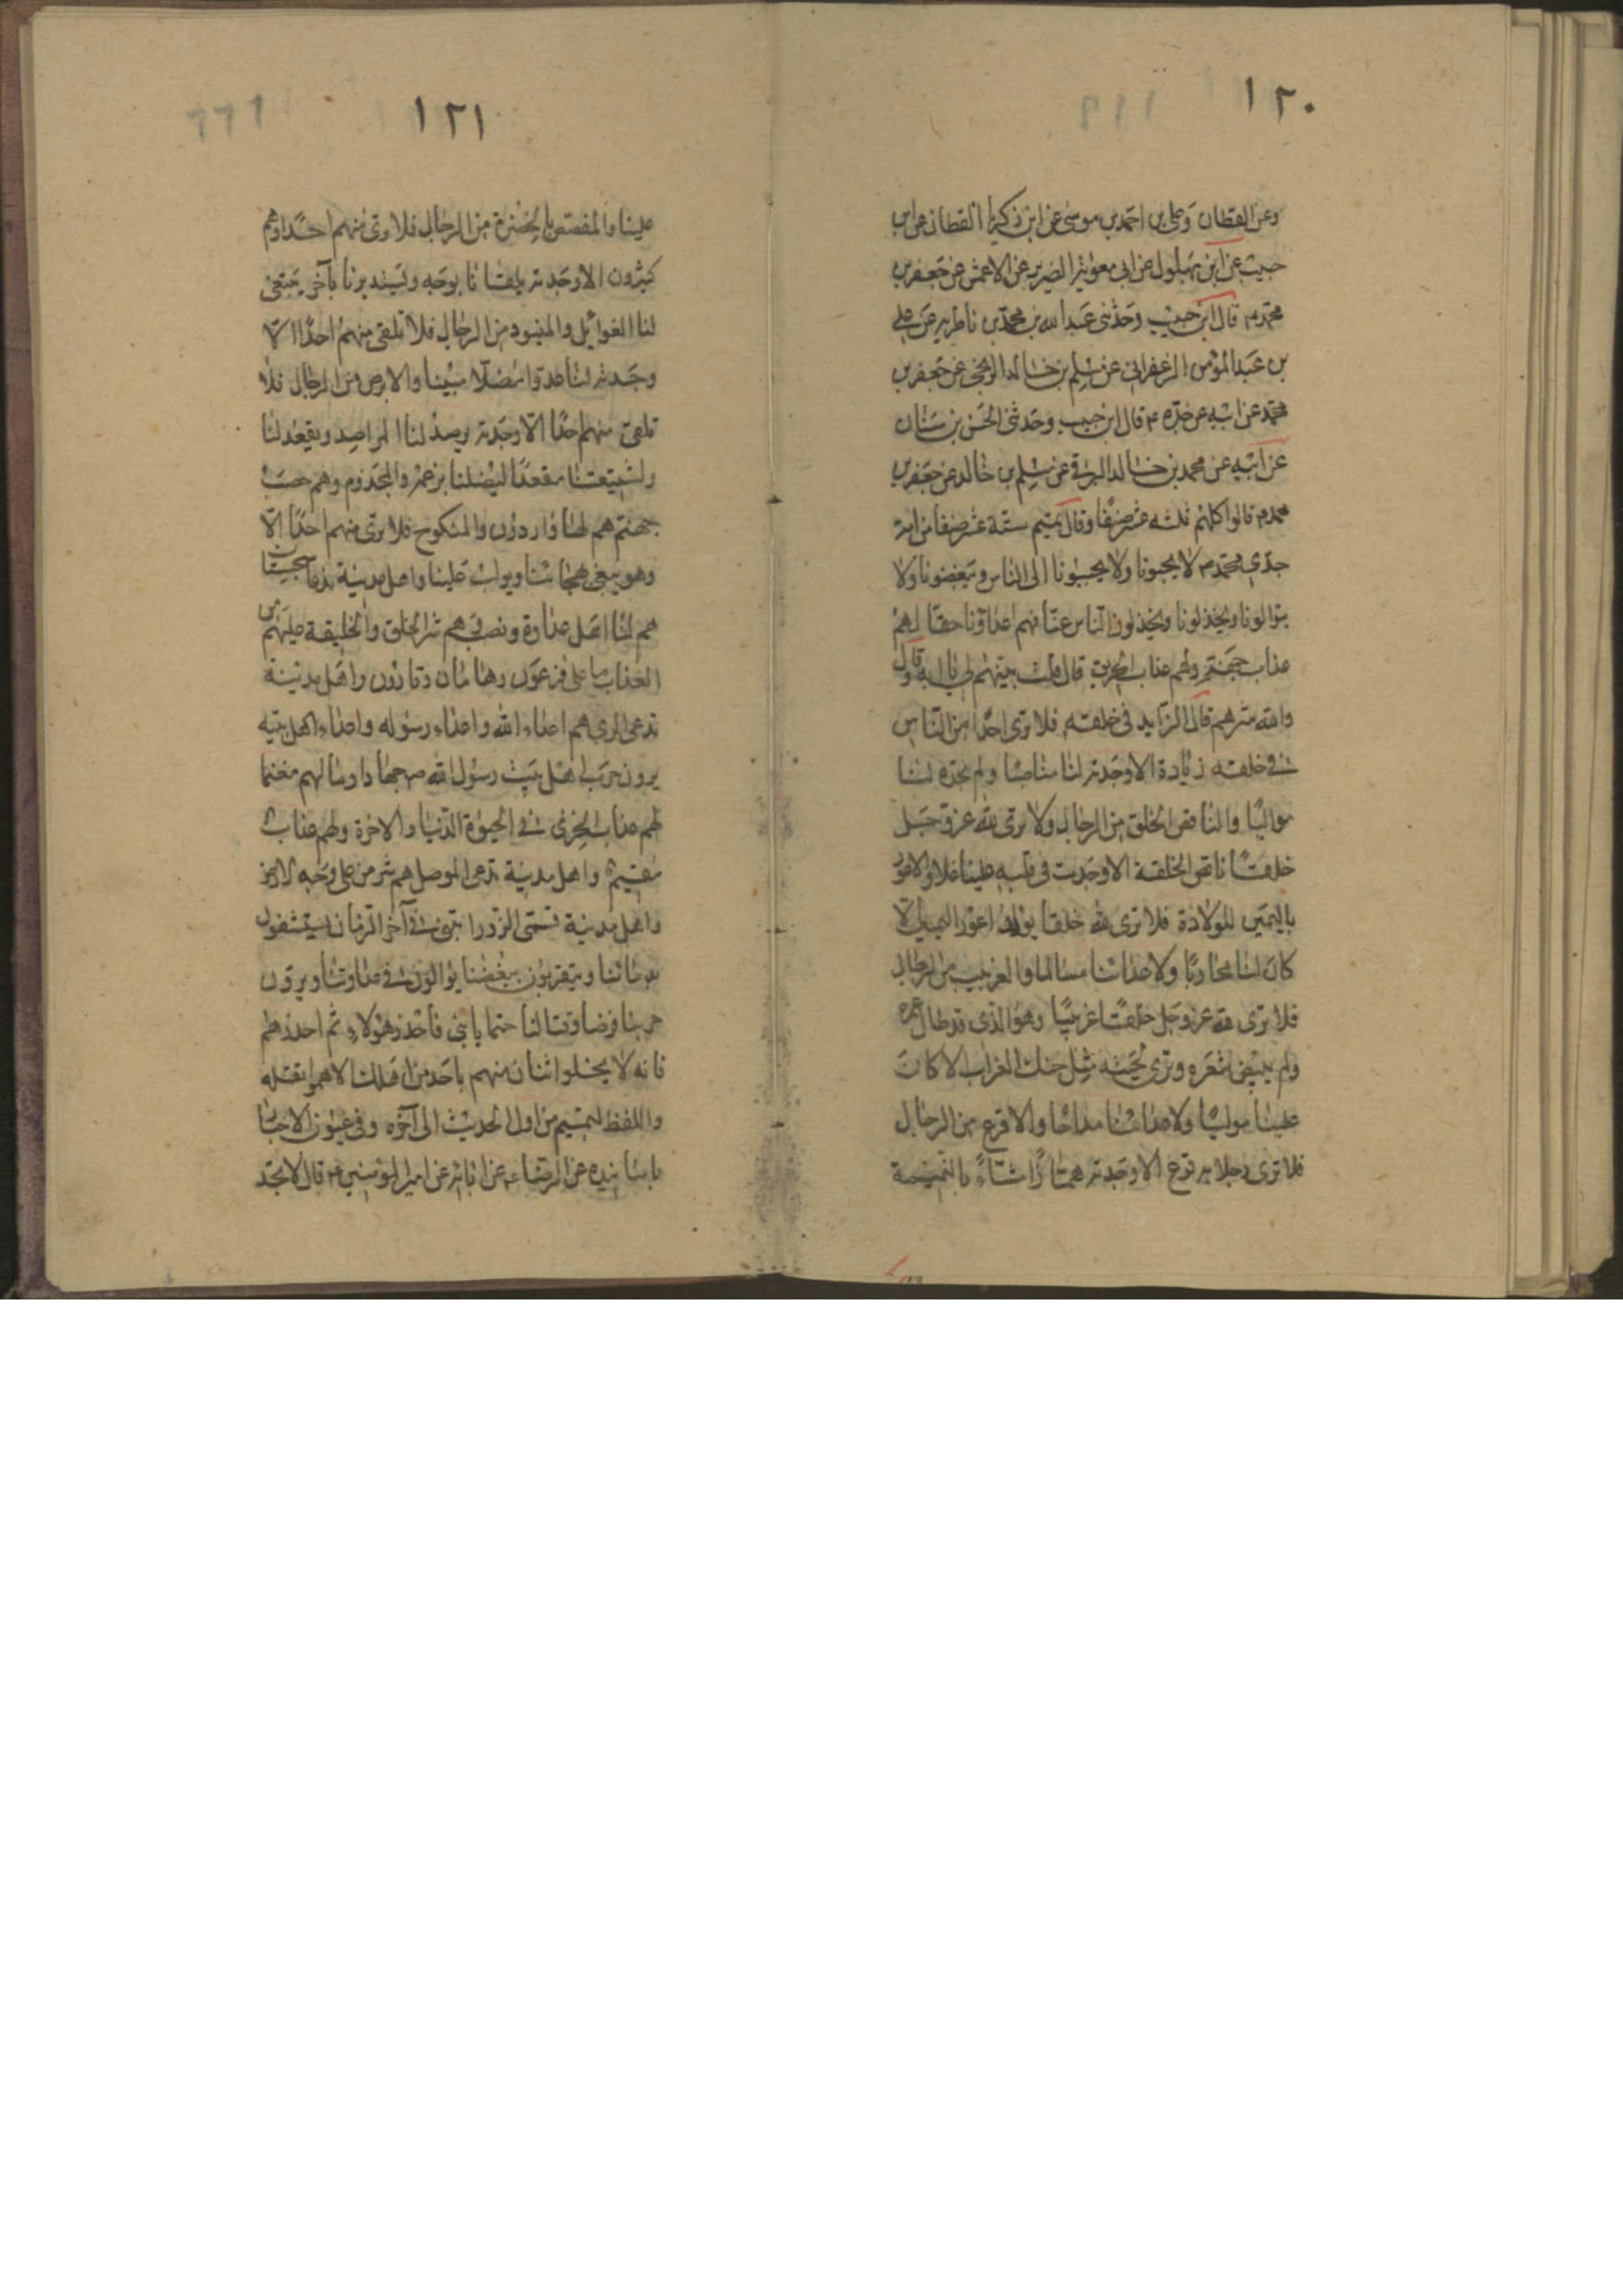 ١٢٠
وعن القطان وعلى بن احمد بن موسى عن ابن زكريا القطان عن ابن
حبيب عن ابن بهلول عن ابى معوية الضرير عن الاعمش عن جعفر بن
محمد م قال ابن حبيب وحدثنى عبد الله بن محمد بن ناطويه عن على
بن عبد المؤمن الزعفرانى عن مسلم بن خالد الزنجى عن جعفر بن
محمد عن ابيه عن جده م قال ابن حبيب وحدثنى الحسن بن سنان
عن ابيه عن محمد بن خالد البرقى عن مسلم بن خالد عن جعفر بن
محمد م قالوا كلهم ثلثه عشر صنفا وقال تميم ستة عشر صنفا من امة
جدى محمد م لا يحبونا ولا يحببونا الى الناس ويبغضونا ولا
يتوالونا ويخذلونا ويخذلون الناس عنا فهم اعداؤنا حقا لهم
عذاب جهنم ولهم عذاب الحريق قال قلت بينهم لى يا ابه وقال
والله شرهم قال الزايد فى خلقته فلا ترى احدا من الناس
فى خلقته زيادة الا وجدته لنا مناصبا ولم تجده لنا
مواليا والناقص الخلق من الرجال ولا يرى لله عز وجل
خلقا ناقص الخلقة الا وجدت فى قلبه علينا غلا والاعور
باليمين للولادة فلا ترى لله خلقا يولد اعور اليمين الا
كان لنا محاربا ولاعدائنا مسالما والغربيب من الرجال
فلا ترى لله عز وجل خلقا غربيبا وهو الذى قد طال عمره
ولم يبيض شعره وترى لحيته مثل حنك الغراب الا كان
علينا موليا ولاعدائنا مداحا والاقرع من الرجال
فلا ترى رجلا به قرع الا وجدته همازا مشاء بالنميمة
١٢١
علينا والمفصص بالخضرة من الرجال فلا ترى منهم احدا وهم
كثيرون الا وجدته يلقانا بوجه ويستدبرنا بآخر يبتغى
لنا الغوائل والمنبود من الرجال فلا تلقى منهم احدا الا
وجدته لنا عدوا مضلا مبينا والابرص من الرجال فلا
تلقى منهم احدا الا وجدته يرصد لنا المراصد ويقعد لنا
ولشيعتنا مقعدا ليضلنا بزعمه والمجذوم وهم حصب
جهنم هم لها واردون والمنكوح فلا ترى منهم احدا الا
وهو يتغنى بهجائنا ويولب علينا واهل مدينة تدعا سجستان
هم لنا اهل عداوة ونصب هم شر الخلق والخليقة عليهم من
العذاب ما على فرعون وهامان وقارون واهل مدينة
تدعى الرى هم اعداء الله واعداء رسوله واعداء اهل بيته
يرون حرب اهل بيت رسول الله ص جهادا ومالهم مغنما
لهم عذاب الخزى فى الحيوة الدنيا والاخرة ولهم عذاب
مقيم واهل مدينة تدعى الموصل هم شر من على وجه الارض
واهل مدينة تسمى الزورا تبنى فى آخر الزمان يستشفون
بدمائنا ويتقربون ببغضنا يوالون فى عداوتنا ويرون
حربنا فرضا وقتالنا حتما يا بنى فاحذر هؤلاء ثم احذرهم
فانه لا يخلوا اثنان منهم باحد من اهلك الا هموا بقتله
واللفظ لتميم من اول الحديث الى آخره وفى عيون الاخبار
باسانيده عن الرضا ع عن ابائه عن امير المؤمنين م قال لا تجد